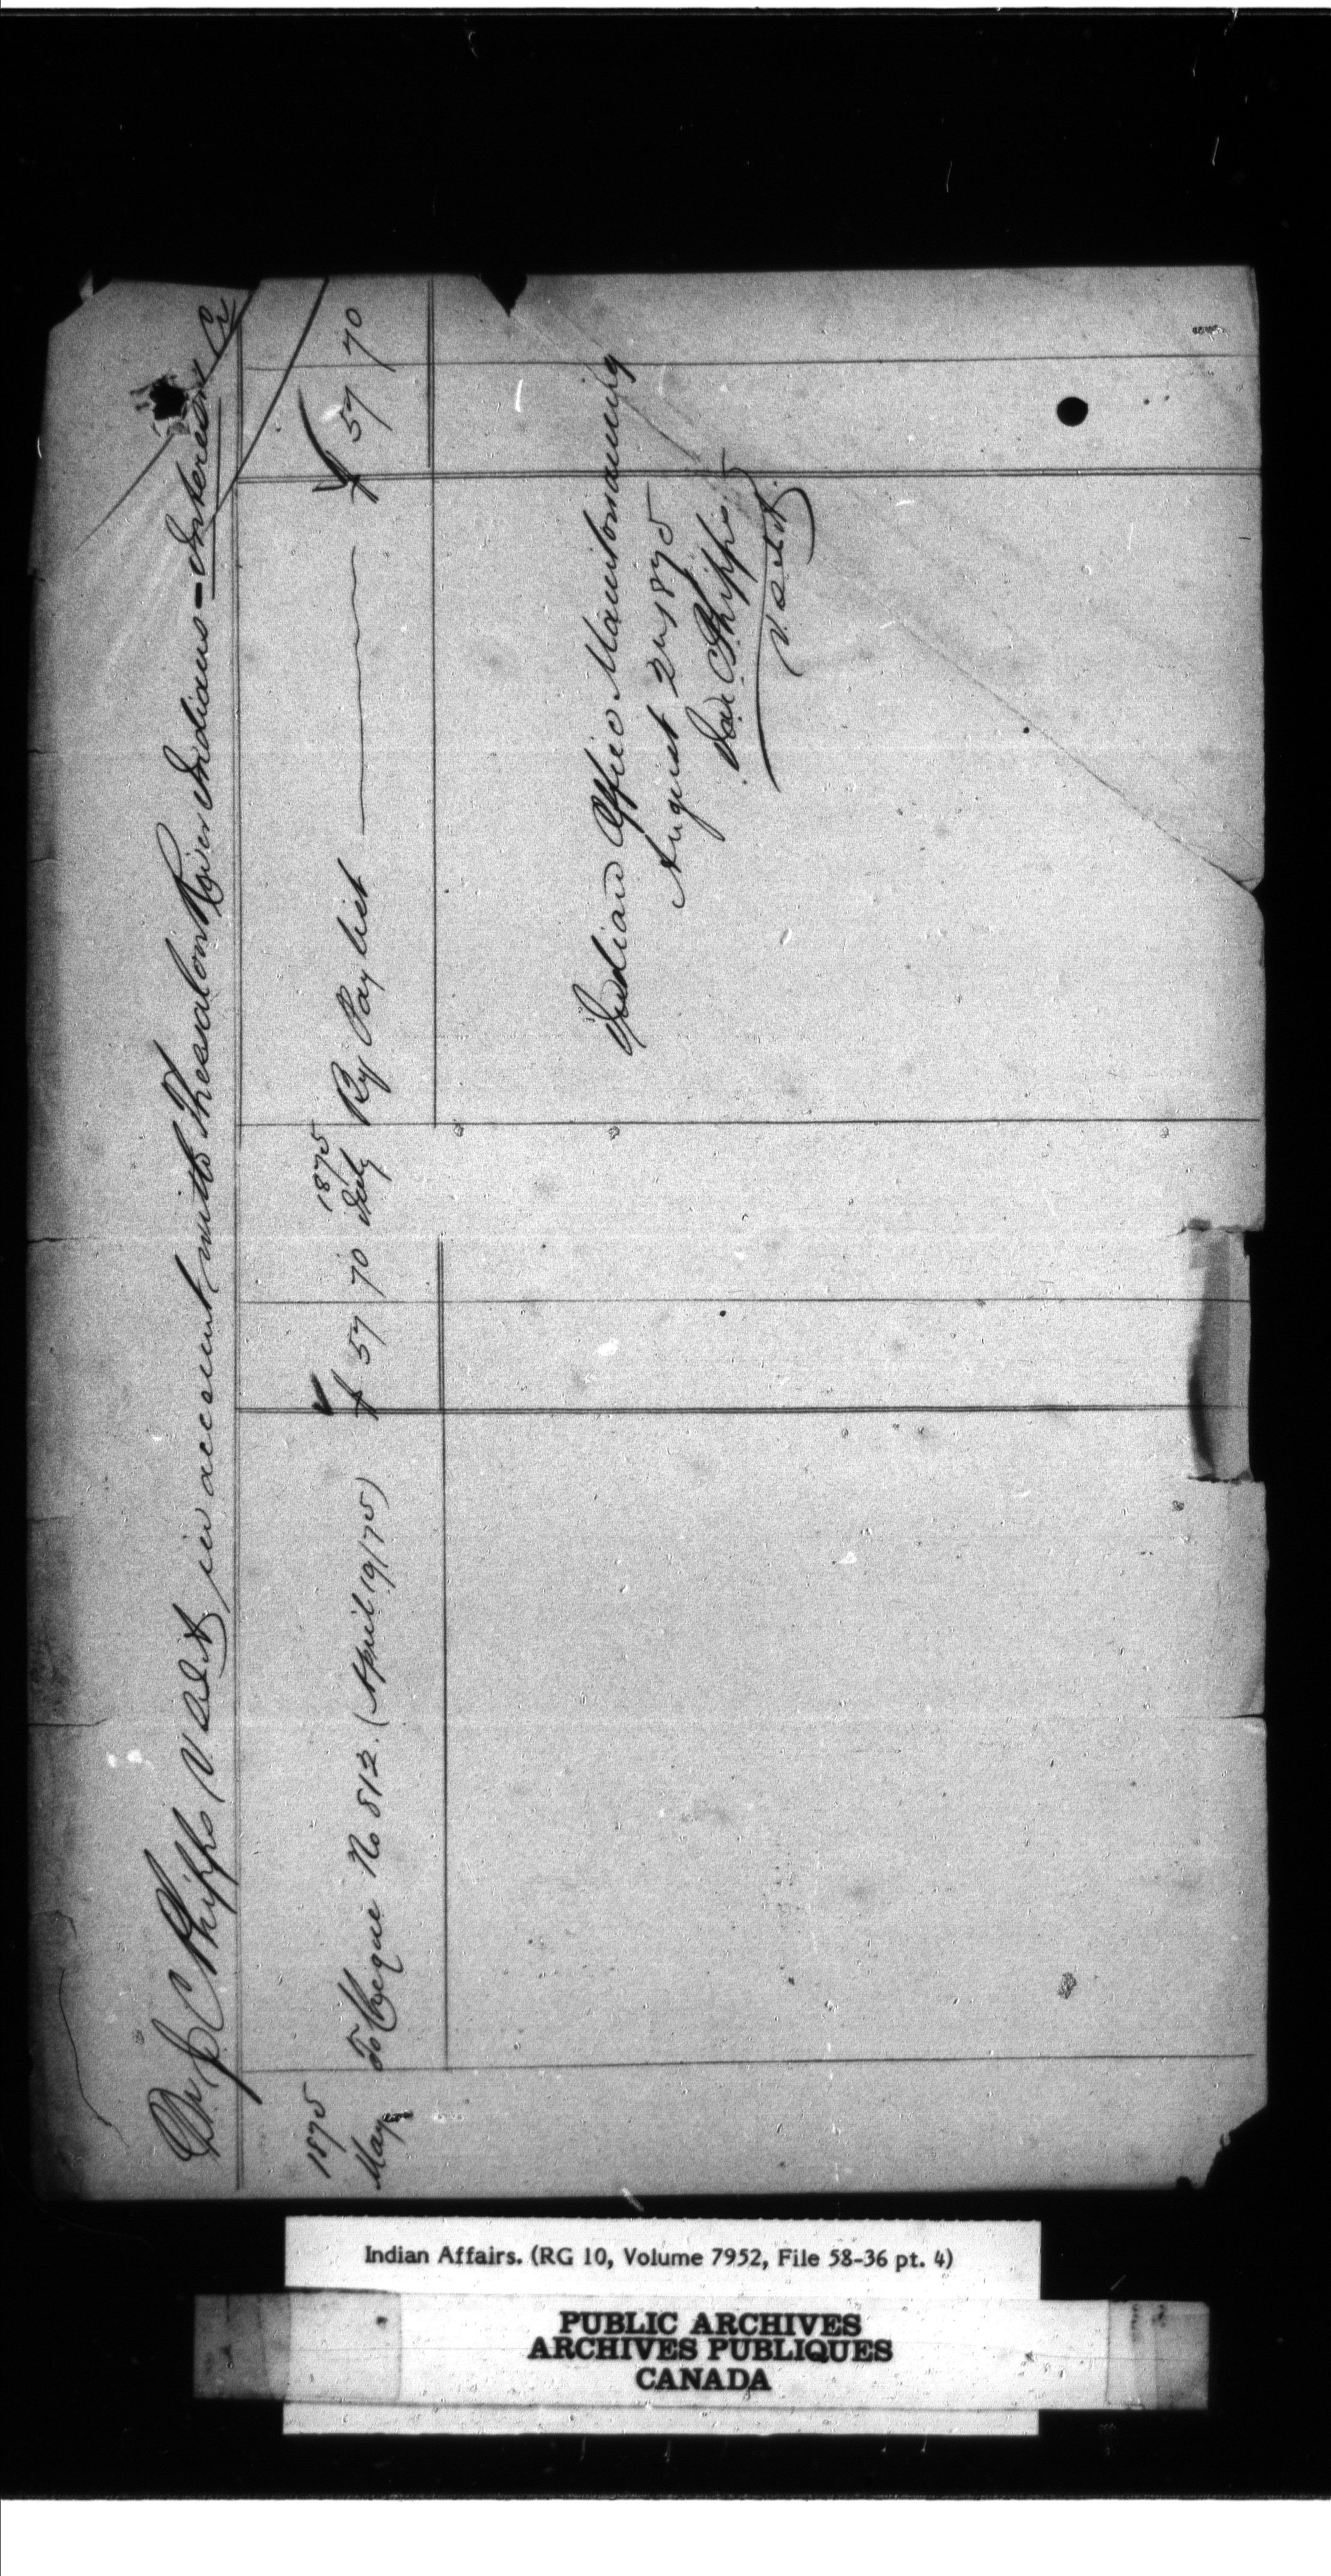 Dr. J. C. Phipps V.S.I.A. in account with Thessalon River Indians - Interest Cr
1875
May To Cheque No 812. (April 19/75) $ 57 70
1875
July By Pay list $ 57 70
Indian Office Manitowaning
August 2nd 1875
Jas. C. Phipps
V.S.I.A.
Indian Affairs. (RG 10, Volume 7952, File 58-36 pt. 4)
PUBLIC ARCHIVES
ARCHIVES PUBLIQUES
CANADA